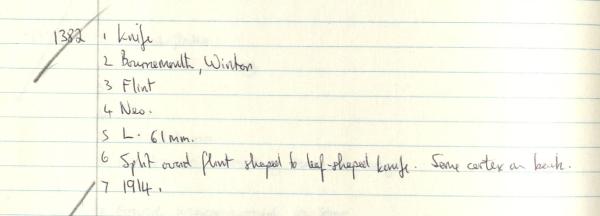 1382 1 Knife
2 Bournemouth, Winton
3 Flint
4 Neo.
5 L. 61mm.
6 Split ovoid flint shaped to leaf-shaped knife. Some cortex on back.
7 1914.